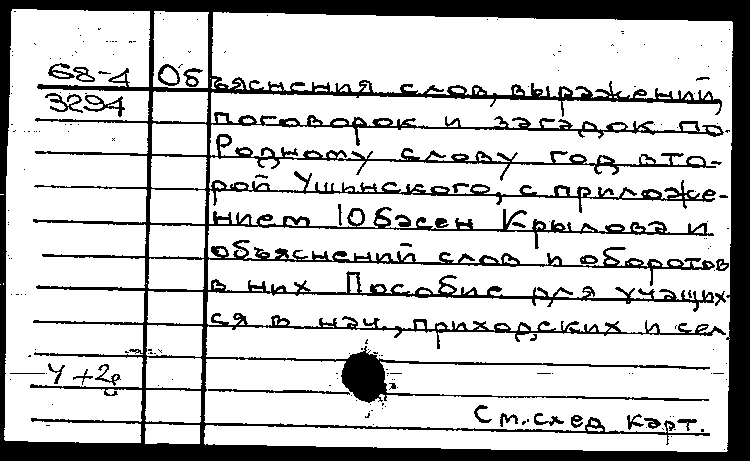 68-4 Объяснения слов, выражений,
3294 поговорок и загадок по
Родному слову год вто-
рой Ушинского, с приложе-
нием 10 басен Крылова и
объяснений слов и оборотов
в них Пособие для учащих-
ся в нач., приходских и сел.
У +2р
См. след карт.